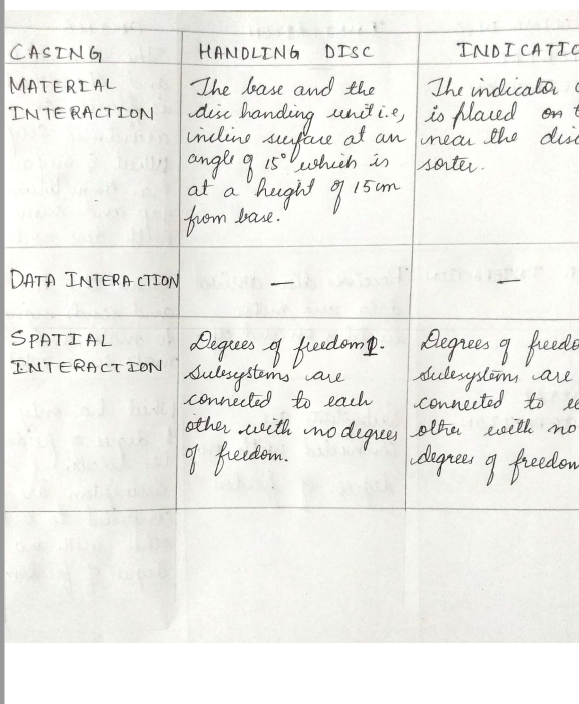 CASING
HANDLING DISC
INDICATIO
MATERIAL
INTERACTION
The base and the
disc handing unit i.e,
incline surface at an
angle of 15° which is
at a height of 15cm
from base.
The indicator
is placed on t
near the disc
sorter.
DATA INTERACTION
—
—
SPATIAL
INTERACTION
Degrees of freedom 1.
Subsystems are
connected to each
other with no degrees
of freedom.
Degrees of freedo
Subsystems are
connected to e
other with no
degrees of freedom